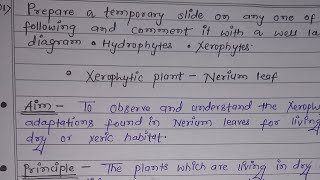 Prepare a temporary slide on any one of
following and comment it with a well la
diagram • Hydrophytes • Xerophytes.
• Xerophytic plant - Nerium leaf
• Aim - To observe and understand the Xeroph
adaptations found in Nerium leaves for living
dry or xeric habitat.
• Principle - The plants which are living in dry